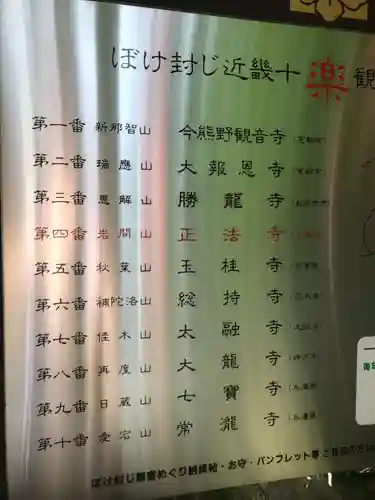 ぼけ封じ近畿十楽観
第一番 新那智山 今熊野観音寺 (京都市)
第二番 瑞應山 大報恩寺 (京都市)
第三番 恵解山 勝龍寺
第四番 岩間山 正法寺
第五番 秋葉山 玉桂寺
第六番 補陀洛山 総持寺
第七番 佳木山 太融寺
第八番 再度山 大龍寺
第九番 日蔵山 七寶寺 (兵庫県)
第十番 愛宕山 常瀧寺 (兵庫県)
ぼけ封じ観音めぐり納経帖・お守・パンフレット等ご